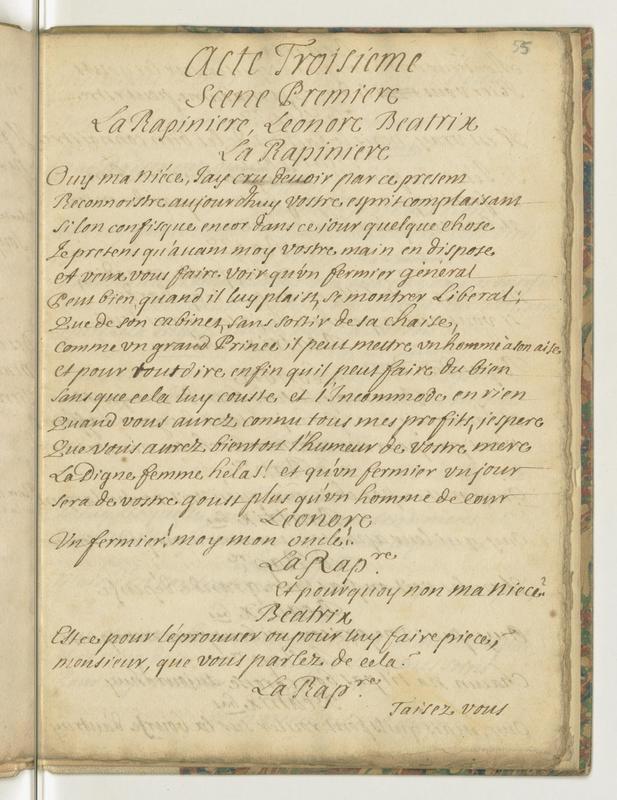 55
Acte Troisieme
Scene Premiere
La Rapiniere, Leonore Beatrix
La Rapiniere
Ouy ma Niéce, J'ay cru devoir par ce present
Reconnoistre aujourd'huy vostre esprit complaisant
Si lon confisque encor dans ce jour quelque chose
Je pretens qu'avant moy vostre main en dispose
et veux vous faire voir qu'vn fermier général
Peut bien quand il luy plaist, se montrer Liberal;
Que de son cabinet, sans sortir de sa chaise,
Comme vn grand Prince il peut mettre vn homme a son aise
et pour tout dire enfin quil peut faire du bien
sans que cela luy couste et l'Incommode en rien
Quand vous aurez connu tous mes profits, jespere
Que vous aurez bientost l'humeur de vostre mere
La Digne femme helas! et qu'vn fermier vn jour
sera de vostre goust plus qu'vn homme de cour
Leonore
Vn fermier! moy mon oncle!
La Rap.re
et pourquoy non ma Niece?
Beatrix
Est ce pour léprouuer ou pour luy faire piece,
monsieur, que vous parlez de cela?
La Rap.re
Taisez vous